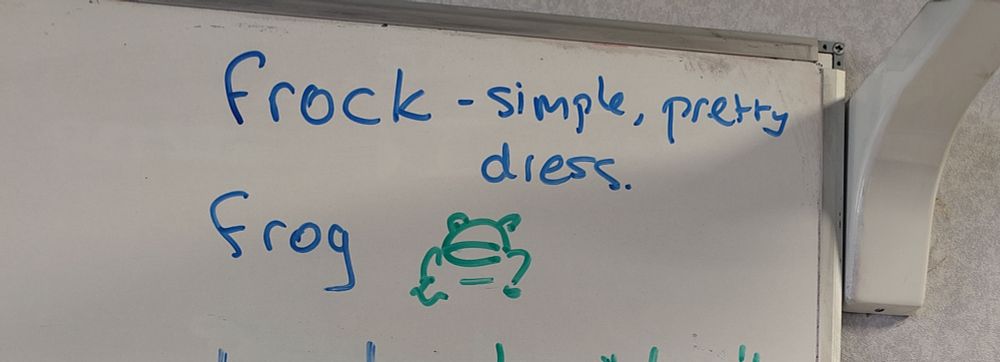 frock - simple, pretty
dress.
frog